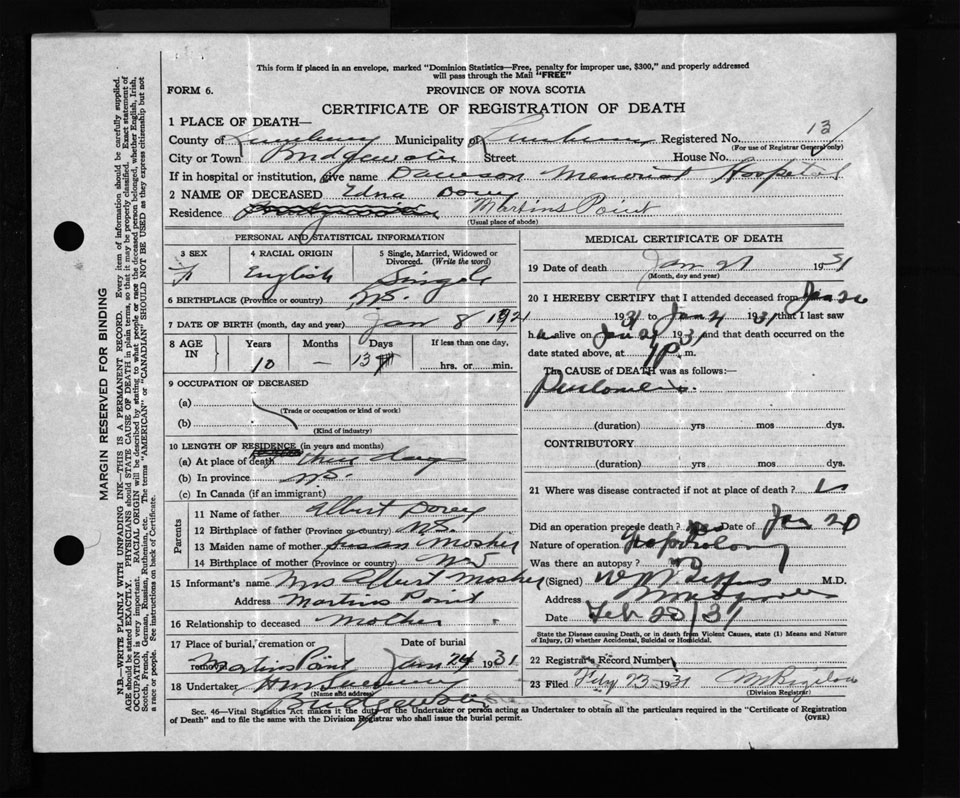 This form if placed in an envelope, marked "Dominion Statistics—Free, penalty for improper use, $300," and properly addressed
will pass through the Mail "FREE"
FORM 6. PROVINCE OF NOVA SCOTIA
CERTIFICATE OF REGISTRATION OF DEATH
1 PLACE OF DEATH—
County of Lunenburg Municipality of Lunenburg Registered No. 13
(For use of Registrar General only)
City or Town Bridgewater Street House No.
If in hospital or institution, give name Dawson Memorial Hospital
2 NAME OF DECEASED Edna Dorey
Residence Martins Point
(Usual place of abode)
PERSONAL AND STATISTICAL INFORMATION
3 SEX 4 RACIAL ORIGIN 5 Single, Married, Widowed or
Divorced. (Write the word)
F English Single
6 BIRTHPLACE (Province or country) N.S.
7 DATE OF BIRTH (month, day and year) Jan 8 1921
8 AGE IN Years Months Days If less than one day,
10 — 13 hrs. or min.
9 OCCUPATION OF DECEASED
(a)
(Trade or occupation or kind of work)
(b)
(Kind of industry)
10 LENGTH OF RESIDENCE (in years and months)
(a) At place of death three days
(b) In province N.S.
(c) In Canada (if an immigrant)
Parents
11 Name of father Albert Dorey
12 Birthplace of father (Province or country) N.S.
13 Maiden name of mother Susan Mosher
14 Birthplace of mother (Province or country)
15 Informant's name Mrs Albert Mosher
Address Martins Point
16 Relationship to deceased Mother
17 Place of burial, cremation or Date of burial
removal Martins Point Jan 24 1931
18 Undertaker
(Name and address)
Bridgewater
MEDICAL CERTIFICATE OF DEATH
19 Date of death Jan 21 1931
(Month, day and year)
20 I HEREBY CERTIFY that I attended deceased from Jan 20
1931 to Jan 21 1931 that I last saw
h alive on Jan 21 1931 and that death occurred on
date stated above, at p.m.
The CAUSE of DEATH was as follows:—
(duration) yrs mos dys.
CONTRIBUTORY
(duration) yrs mos dys.
21 Where was disease contracted if not at place of death?
Did an operation precede death? yes Date of Jan 20
Nature of operation
Was there an autopsy?
(Signed) M.D.
Address
Date Feb 20/31
State the Disease causing Death, or in death from Violent Causes, state (1) Means and Nature
of Injury, (2) whether Accidental, Suicidal or Homicidal.
22 Registrar's Record Number
23 Filed Feby 23 1931
(Division Registrar)
Sec. 46—Vital Statistics Act makes it the duty of the Undertaker or person acting as Undertaker to obtain all the particulars required in the "Certificate of Registration
of Death" and to file the same with the Division Registrar who shall issue the burial permit. (OVER)
MARGIN RESERVED FOR BINDING
N.B.—WRITE PLAINLY WITH UNFADING INK—THIS IS A PERMANENT RECORD. Every item of information should be carefully supplied.
AGE should be stated EXACTLY. PHYSICIANS should STATE CAUSE OF DEATH in plain terms, so that it may be properly classified. Exact statement of
OCCUPATION is very important. RACIAL ORIGIN will be described by stating to what people or race the deceased person belonged, whether English, Irish,
Scotch, French, German, Russian, Ruthenian, etc. The terms "AMERICAN" or "CANADIAN" SHOULD NOT BE USED as they express citizenship but not
a race or people. See instructions on back of Certificate.